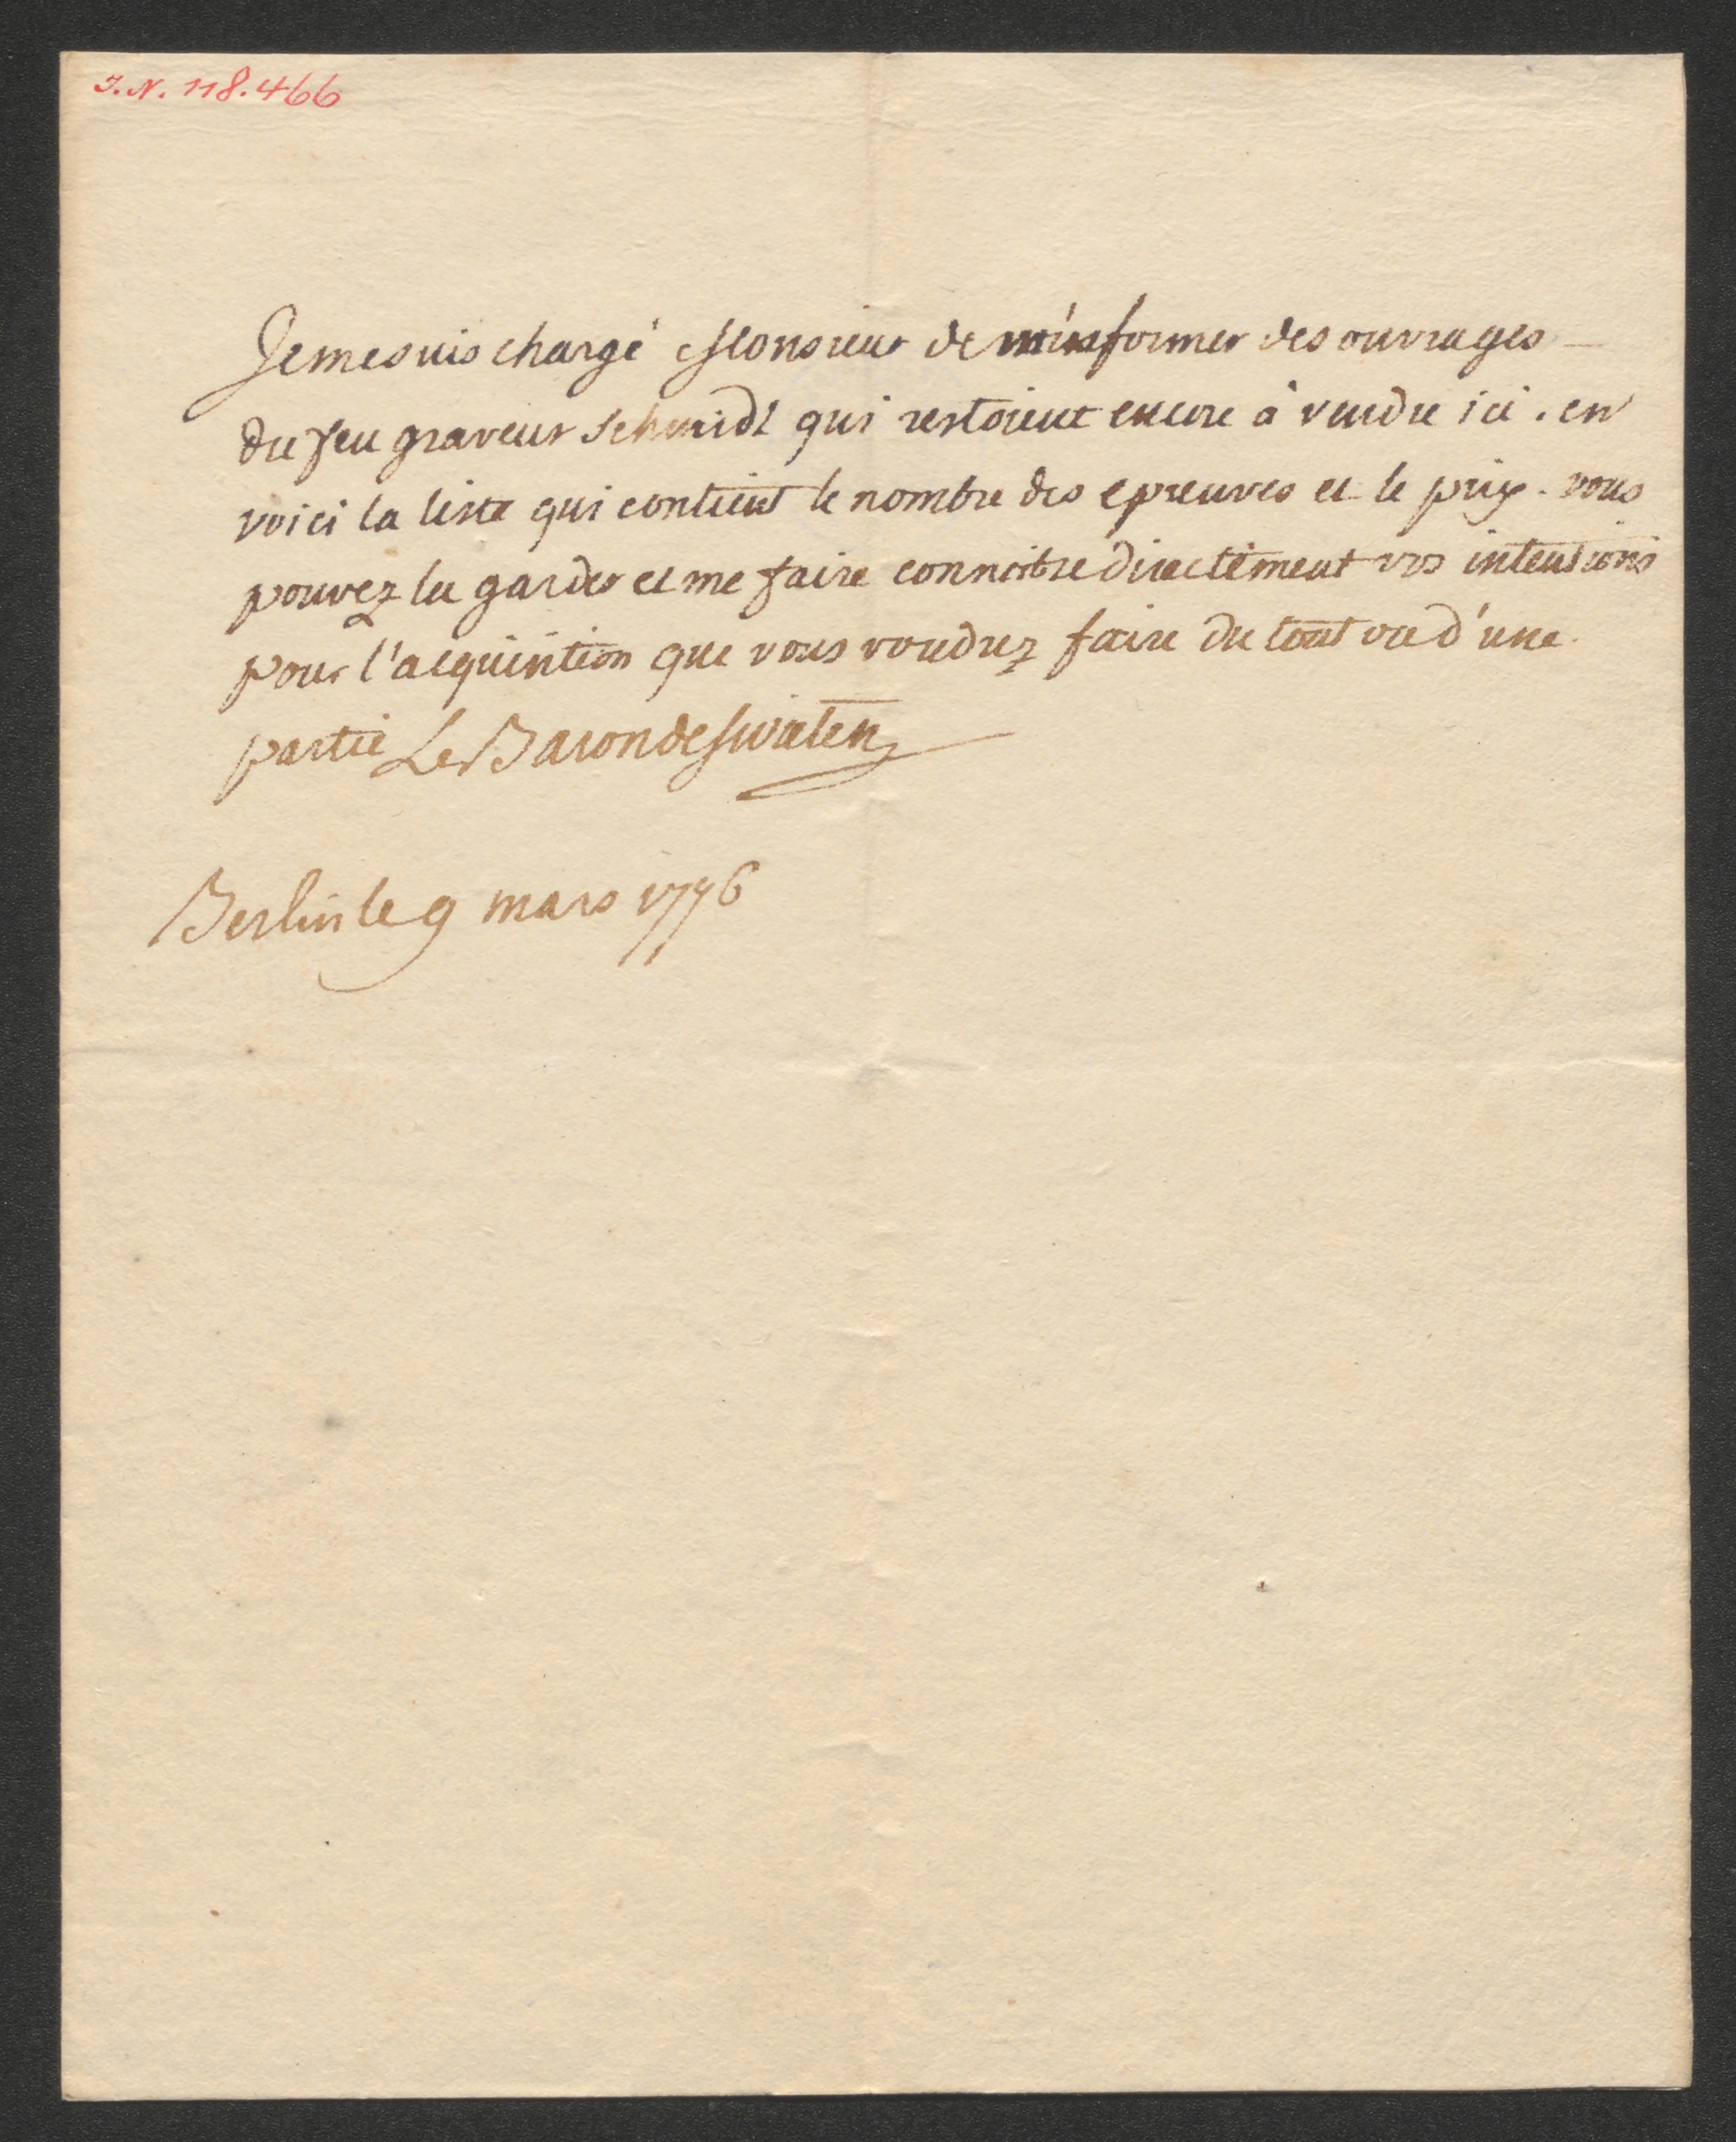 I.N. 118.466
Je me suis chargé Monsieur de m'informer des ouvrages
du feu graveur Schmidt qui restoient encore à vendre ici. en
voici la liste qui contient le nombre des epreuves et le prix. vous
pouvez la garder et me faire connoitre directement vos intentions
pour l'acquisition que vous voudrez faire du tout ou d'une
partie Le Baron de Swieten
Berlin le 9 mars 1776